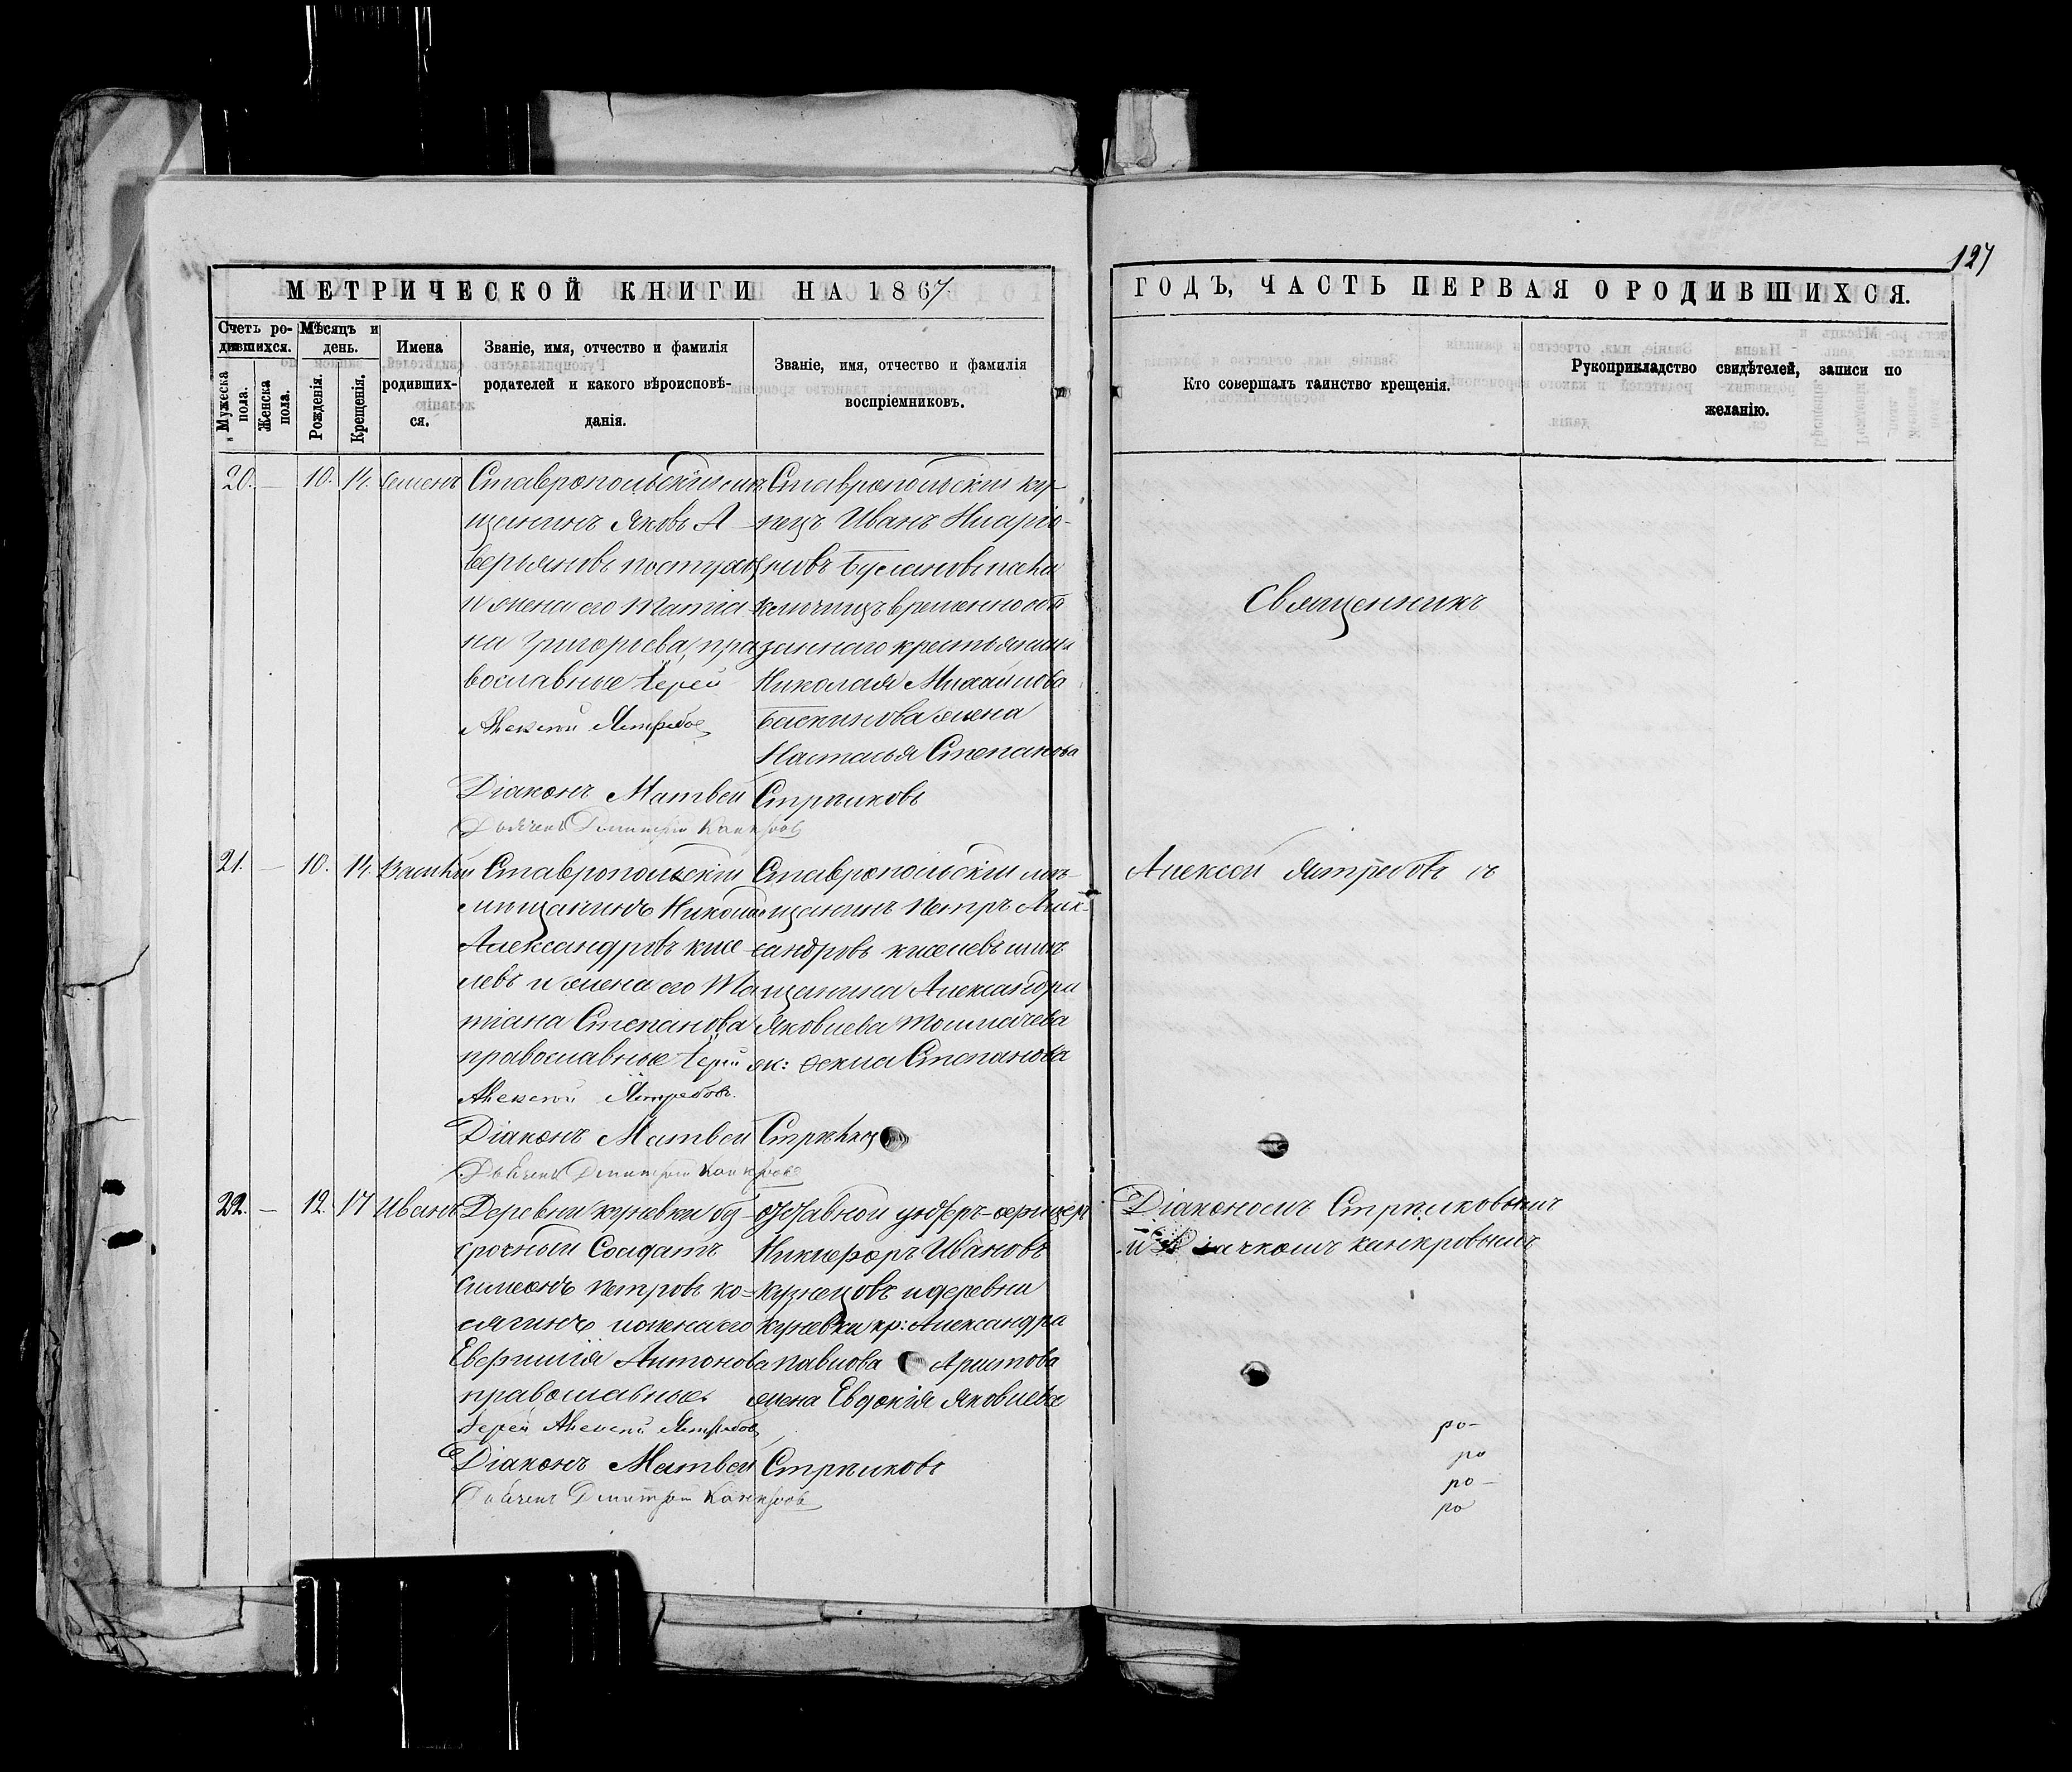 127
МЕТРИЧЕСКОЙ КНИГИ НА 1867
ГОДЪ, ЧАСТЬ ПЕРВАЯ О РОДИВШИХСЯ.
Счетъ ро-
дившихся.
Мужеска пола.
Женска пола.
Мѣсяцъ и
день.
Рожденія.
Крещенія.
Имена
родивших-
ся.
Званіе, имя, отчество и фамилія
родителей и какого вѣроисповѣ-
данія.
Званіе, имя, отчество и фамилія
воспріемниковъ.
Кто совершалъ таинство крещенія.
Рукоприкладство свидѣтелей, записи по
желанію.
20. — 10. 14. Семенъ
Ставропольскій мѣ-
щанинъ Яковъ А-
верьяновъ
и жена его Татіа-
на Григорьева, пра-
вославные Іерей
Алексѣй Ястребов
Діаконъ Матвей Стрѣлковъ
Дьячекъ Димитрій
Ставропольскій ку-
пецъ Иванъ Иларіо-
новъ
временно обя-
заннаго крестьянина
Николая Михайлова
жена
Наталья Степанова
21. — 10. 14. Василій
Ставропольскій
мѣщанинъ Николай
Александровъ Кисе-
левъ и жена его Та-
тіана Степанова
православные Іерей
Алексѣй Ястребовъ.
Діаконъ Матвей
Дьячекъ Димитрій
Ставропольскій мѣ-
щанинъ Петръ Алек-
сандровъ Киселевъ и мѣ-
щанина Александра
Яковлева Толмачева
ж: Фекла Степанова
22. — 12. 17 Иванъ
Деревни Кунѣвки без-
срочный Солдатъ
Симеонъ Петровъ Ко-
сягинъ и жена его
Антонова
православные.
Іерей Алексѣй Ястребовъ
Діаконъ Матвей Стрѣлковъ
Дьячекъ Димитрій
отставной ундеръ-офицеръ
Никифоръ Ивановъ
Кузнецовъ и деревни
Кунѣвки кр: Александра
Павлова Аристова
жена Евдокія Яковлева
Священникъ
Алексѣй Ястребовъ съ
Діакономъ Стрѣлковымъ
и
ро-
ро
ро-
ро